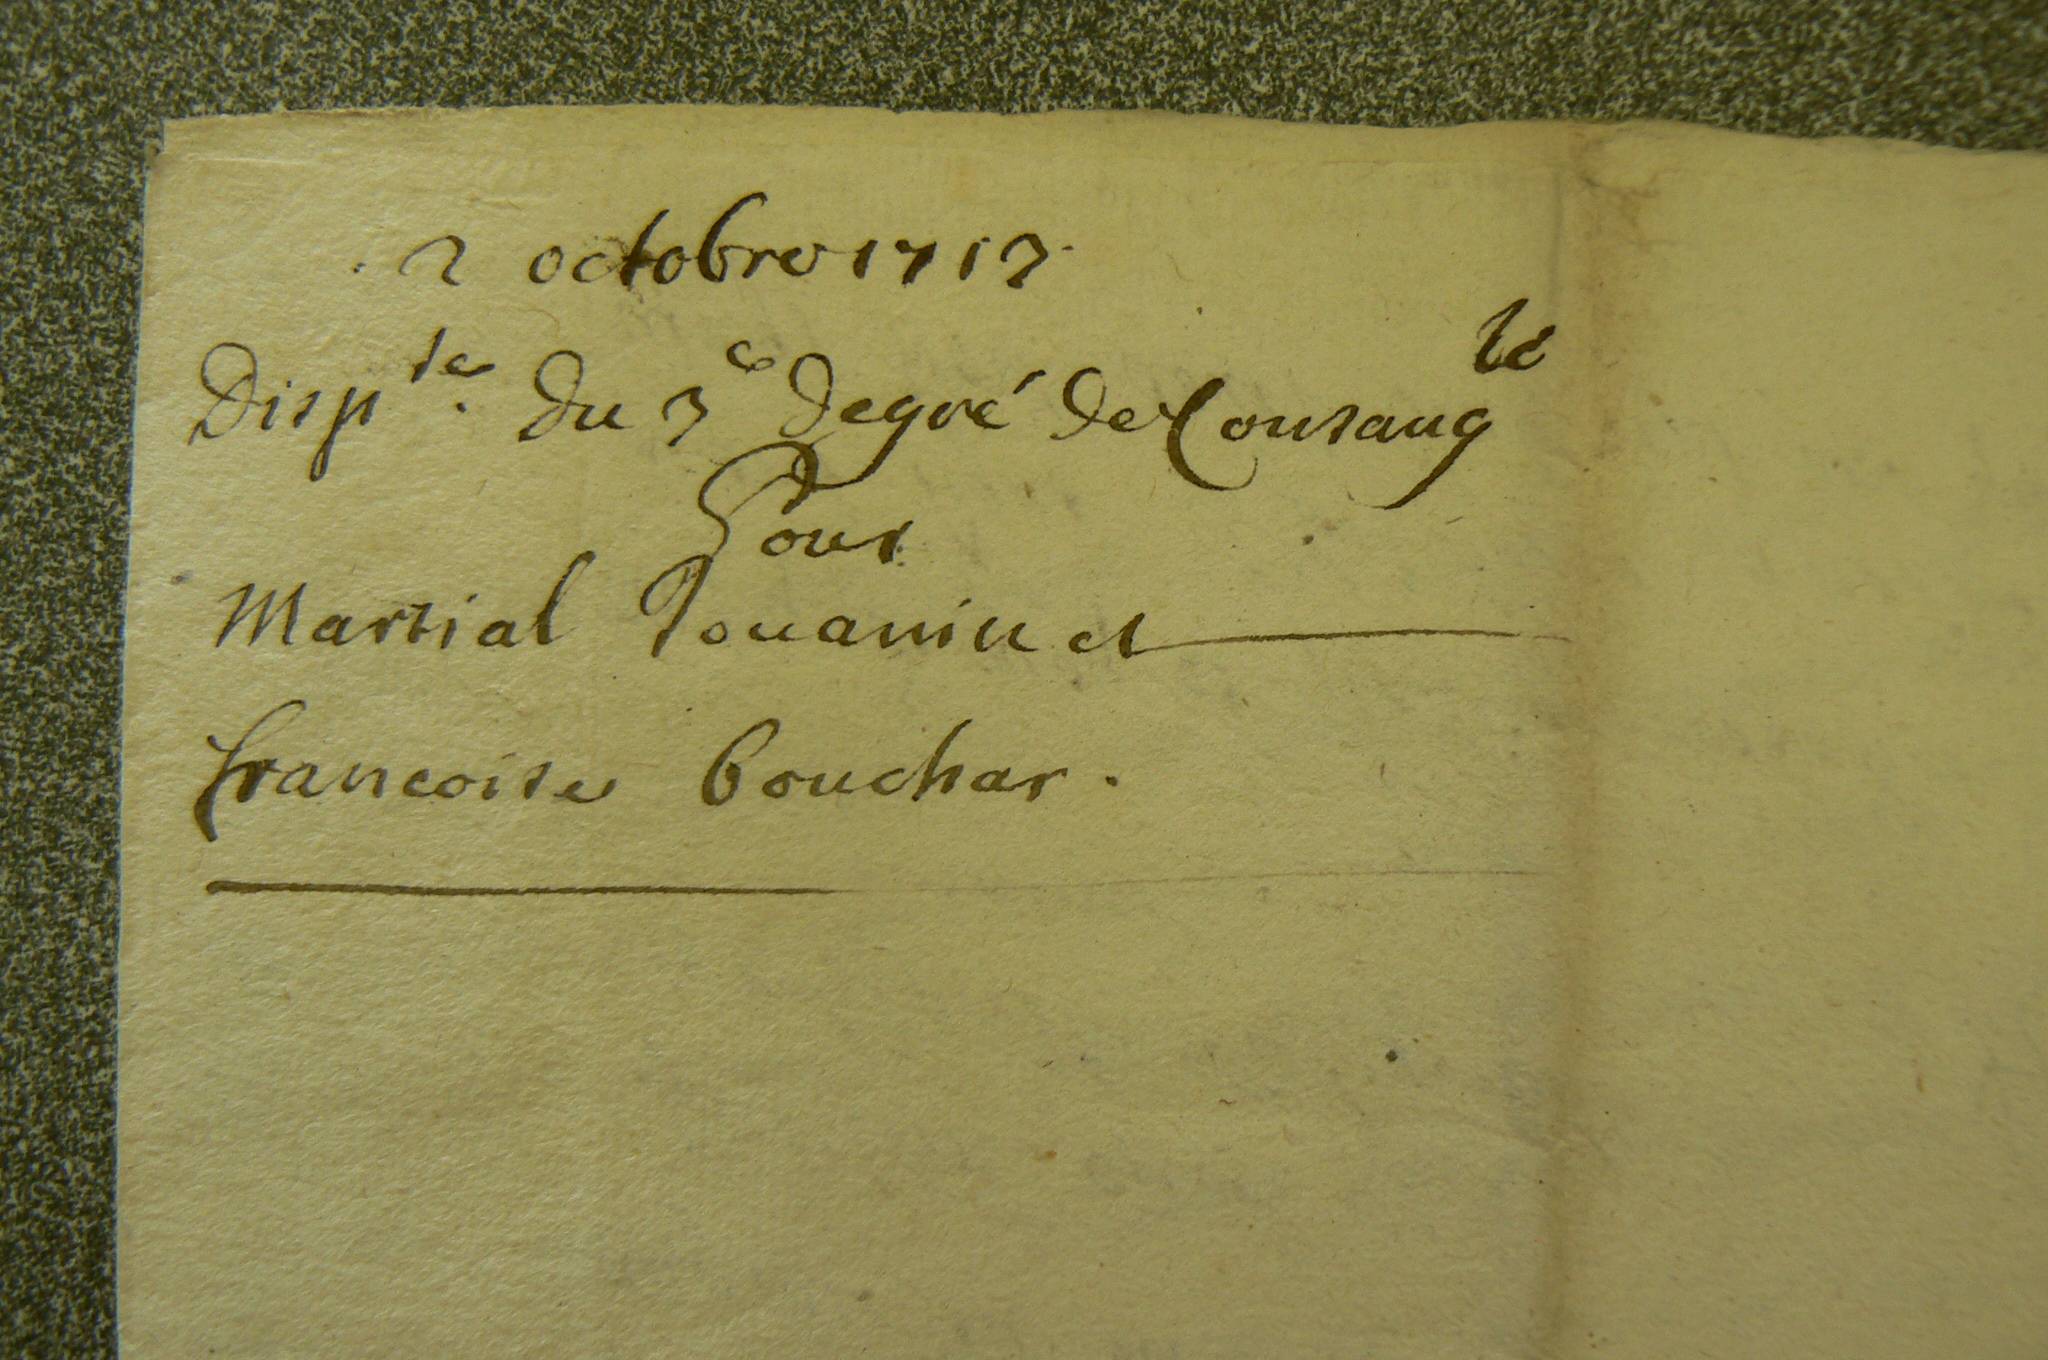 2 octobre 1713
Disp^se du 3^e degré de Consang^té
Pour
Martial Jouanin et
francoise bouchar.